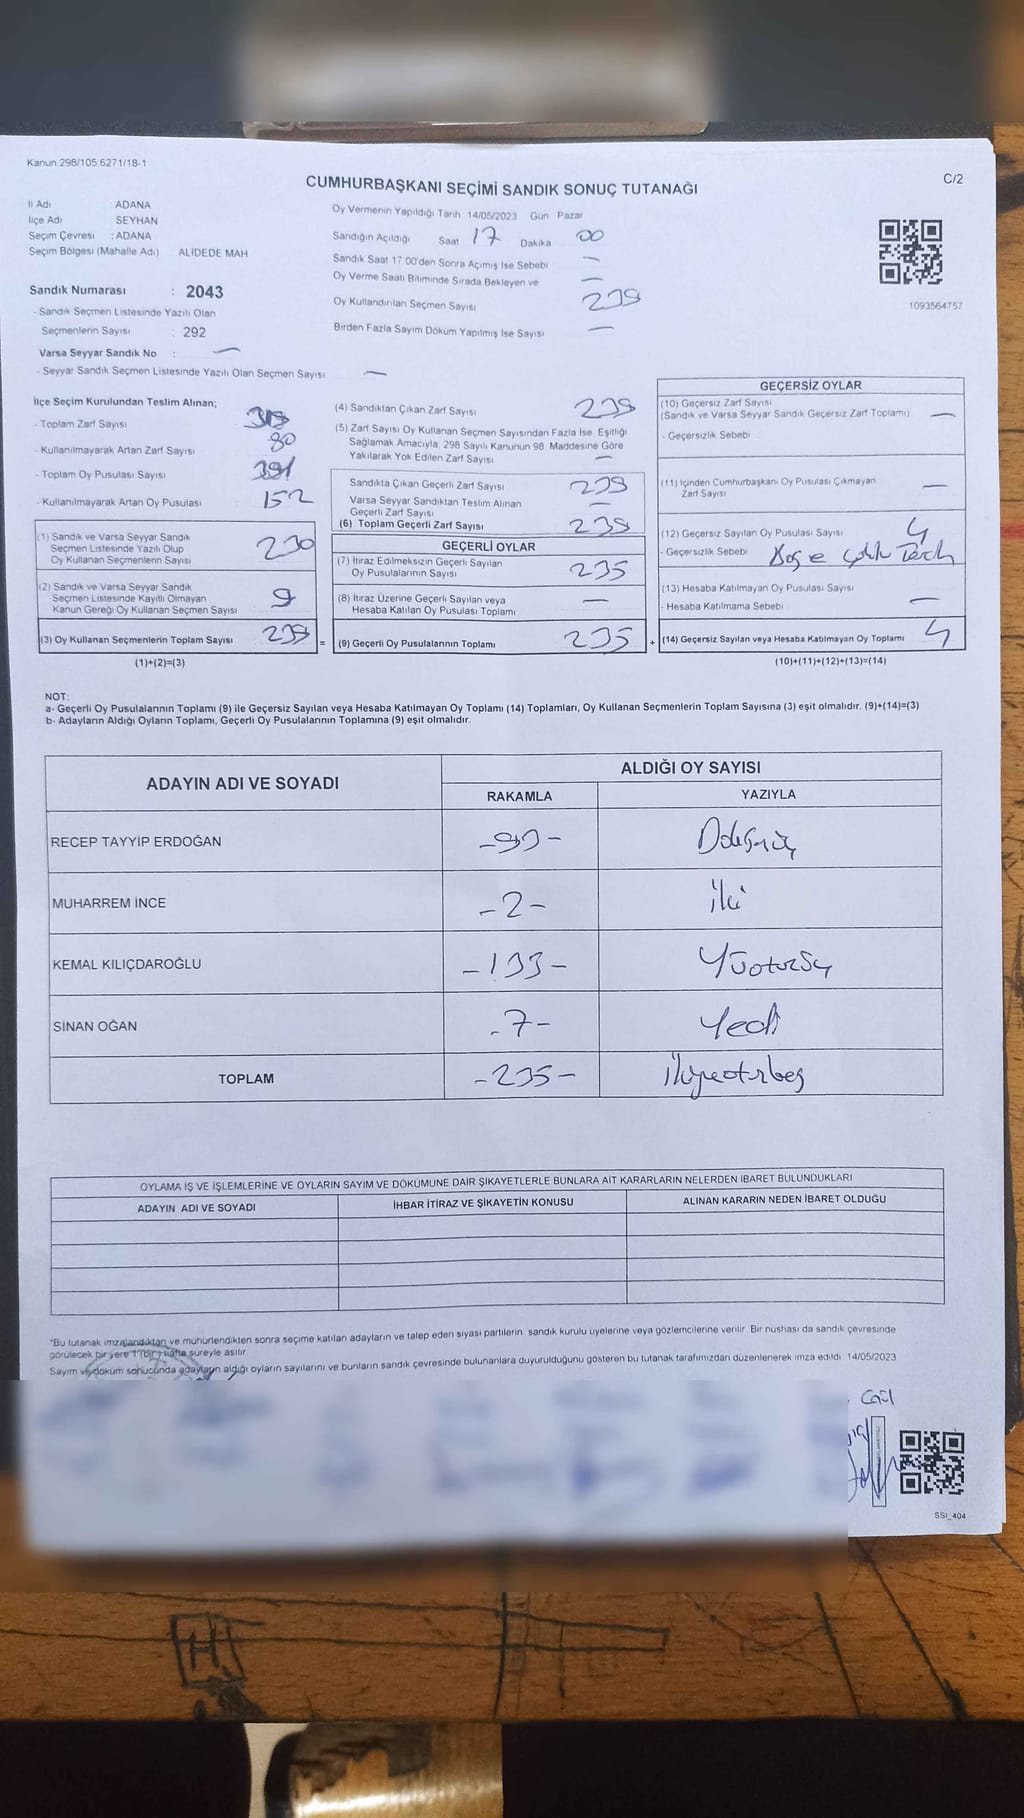 Kanun.298/105 6271/18-1
C/2
CUMHURBAŞKANI SEÇİMİ SANDIK SONUÇ TUTANAĞI
İl Adı ADANA
İlçe Adı SEYHAN
Seçim Çevresi : ADANA
Seçim Bölgesi (Mahalle Adı) ALIDEDE MAH
Sandık Numarası : 2043
- Sandık Seçmen Listesinde Yazılı Olan
Seçmenlerin Sayısı : 292
Varsa Seyyar Sandık No : —
- Seyyar Sandık Seçmen Listesinde Yazılı Olan Seçmen Sayısı —
Oy Vermenin Yapıldığı Tarih 14/05/2023 Gün Pazar
Sandığın Açıldığı Saat 17 Dakika 00
Sandık Saat 17 00'den Sonra Açımış İse Sebebi —
Oy Verme Saati Bitiminde Sırada Bekleyen ve —
Oy Kullandırılan Seçmen Sayısı 239
Birden Fazla Sayım Döküm Yapılmış İse Sayısı —
1093564757
İlçe Seçim Kurulundan Teslim Alınan;
- Toplam Zarf Sayısı
- Kullanılmayarak Artan Zarf Sayısı 80
- Toplam Oy Pusulası Sayısı 391
- Kullanılmayarak Artan Oy Pusulası 152
(1) Sandık ve Varsa Seyyar Sandık
Seçmen Listesinde Yazılı Olup
Oy Kullanan Seçmenlerin Sayısı 230
(2) Sandık ve Varsa Seyyar Sandık
Seçmen Listesinde Kayıtlı Olmayan
Kanun Gereği Oy Kullanan Seçmen Sayısı 9
(3) Oy Kullanan Seçmenlerin Toplam Sayısı 239 =
(1)+(2)=(3)
(4) Sandıktan Çıkan Zarf Sayısı 239
(5) Zarf Sayısı Oy Kullanan Seçmen Sayısından Fazla İse Eşitliği
Sağlamak Amacıyla, 298 Sayılı Kanunun 98 Maddesine Göre
Yakılarak Yok Edilen Zarf Sayısı —
Sandıkta Çıkan Geçerli Zarf Sayısı 239
Varsa Seyyar Sandıktan Teslim Alınan
Geçerli Zarf Sayısı —
(6) Toplam Geçerli Zarf Sayısı 239
GEÇERLİ OYLAR
(7) İtiraz Edilmeksizin Geçerli Sayılan
Oy Pusulalarının Sayısı 235
(8) İtiraz Üzerine Geçerli Sayılan veya
Hesaba Katılan Oy Pusulası Toplamı —
(9) Geçerli Oy Pusulalarının Toplamı 235 +
GEÇERSİZ OYLAR
(10) Geçersiz Zarf Sayısı
(Sandık ve Varsa Seyyar Sandık Geçersiz Zarf Toplamı) —
- Geçersizlik Sebebi
(11) İçinden Cumhurbaşkanı Oy Pusulası Çıkmayan
Zarf Sayısı —
(12) Geçersiz Sayılan Oy Pusulası Sayısı 4
- Geçersizlik Sebebi Boş ve Çoklu Tercih
(13) Hesaba Katılmayan Oy Pusulası Sayısı
- Hesaba Katılmama Sebebi —
(14) Geçersiz Sayılan veya Hesaba Katılmayan Oy Toplamı 4
(10)+(11)+(12)+(13)=(14)
NOT:
a- Geçerli Oy Pusulalarının Toplamı (9) ile Geçersiz Sayılan veya Hesaba Katılmayan Oy Toplamı (14) Toplamları, Oy Kullanan Seçmenlerin Toplam Sayısına (3) eşit olmalıdır. (9)+(14)=(3)
b- Adayların Aldığı Oyların Toplamı, Geçerli Oy Pusulalarının Toplamına (9) eşit olmalıdır.
ADAYIN ADI VE SOYADI ALDIĞI OY SAYISI
RAKAMLA YAZIYLA
RECEP TAYYİP ERDOĞAN -93- Doksanüç
MUHARREM İNCE -2- İki
KEMAL KILIÇDAROĞLU -133- Yüzotuzüç
SİNAN OĞAN -7- Yedi
TOPLAM -235- İkiyüzotuzbeş
OYLAMA İŞ VE İŞLEMLERİNE VE OYLARIN SAYIM VE DÖKÜMÜNE DAİR ŞİKAYETLERLE BUNLARA AİT KARARLARIN NELERDEN İBARET BULUNDUKLARI
ADAYIN ADI VE SOYADI İHBAR İTİRAZ VE ŞİKAYETİN KONUSU ALINAN KARARIN NEDEN İBARET OLDUĞU
*Bu tutanak imzalandıktan ve mühürlendikten sonra seçime katılan adayların ve talep eden siyasi partilerin sandık kurulu üyelerine veya gözlemcilerine verilir Bir nüshası da sandık çevresinde
görülecek bir yere 1 (bir) hafta süreyle asılır.
Sayım ve döküm sonucunda adayların aldığı oyların sayılarını ve bunların sandık çevresinde bulunanlara duyurulduğunu gösteren bu tutanak tarafımızdan düzenlenerek imza edildi 14/05/2023
SSI_404
H